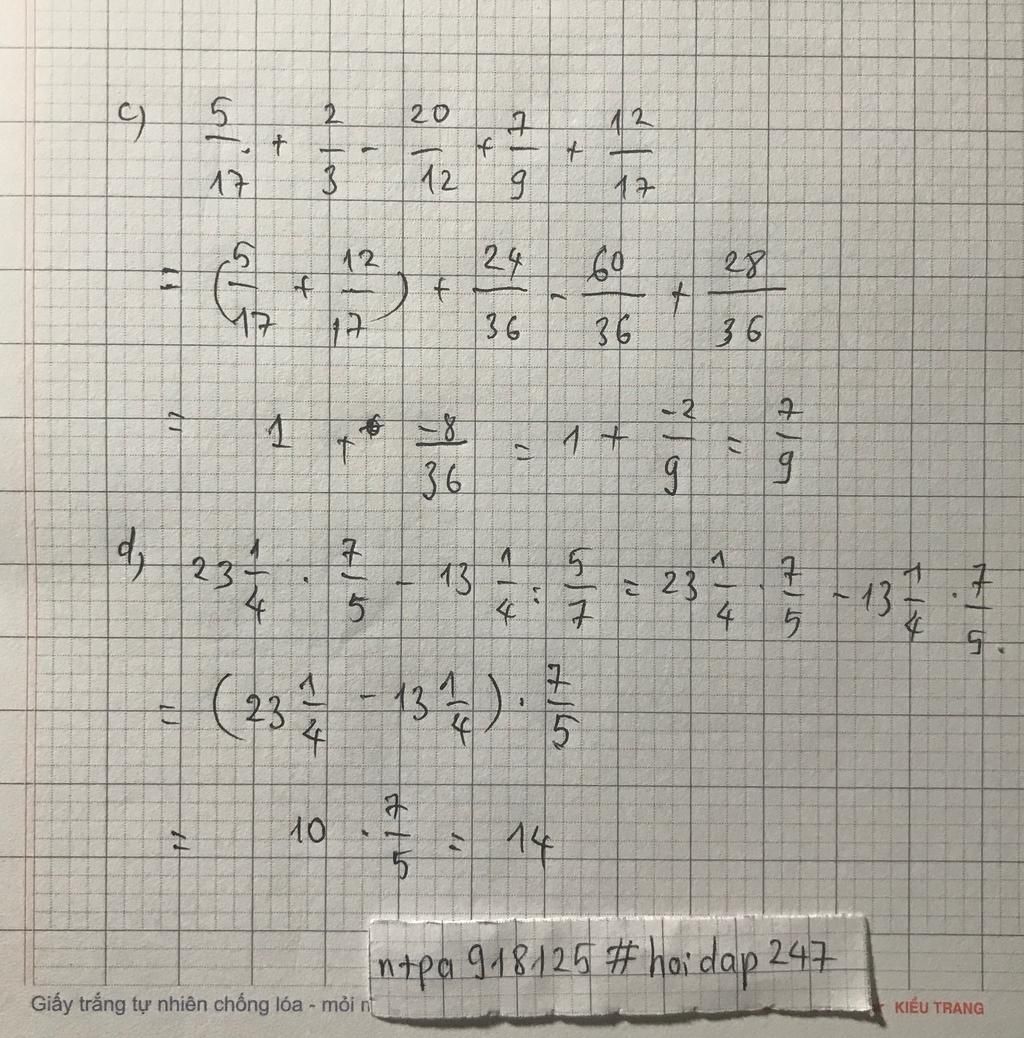 c) 5/17 + 2/3 - 20/12 + 7/9 + 12/17
= (5/17 + 12/17) + 24/36 - 60/36 + 28/36
= 1 + -8/36 = 1 + -2/9 = 7/9
d) 23 1/4 . 7/5 - 13 1/4 : 5/7 = 23 1/4 . 7/5 - 13 1/4 . 7/5.
= (23 1/4 - 13 1/4) . 7/5
= 10 . 7/5 = 14
ntpa 918125 # hoidap 247
Giấy trắng tự nhiên chống lóa - mỏi
KIỀU TRANG